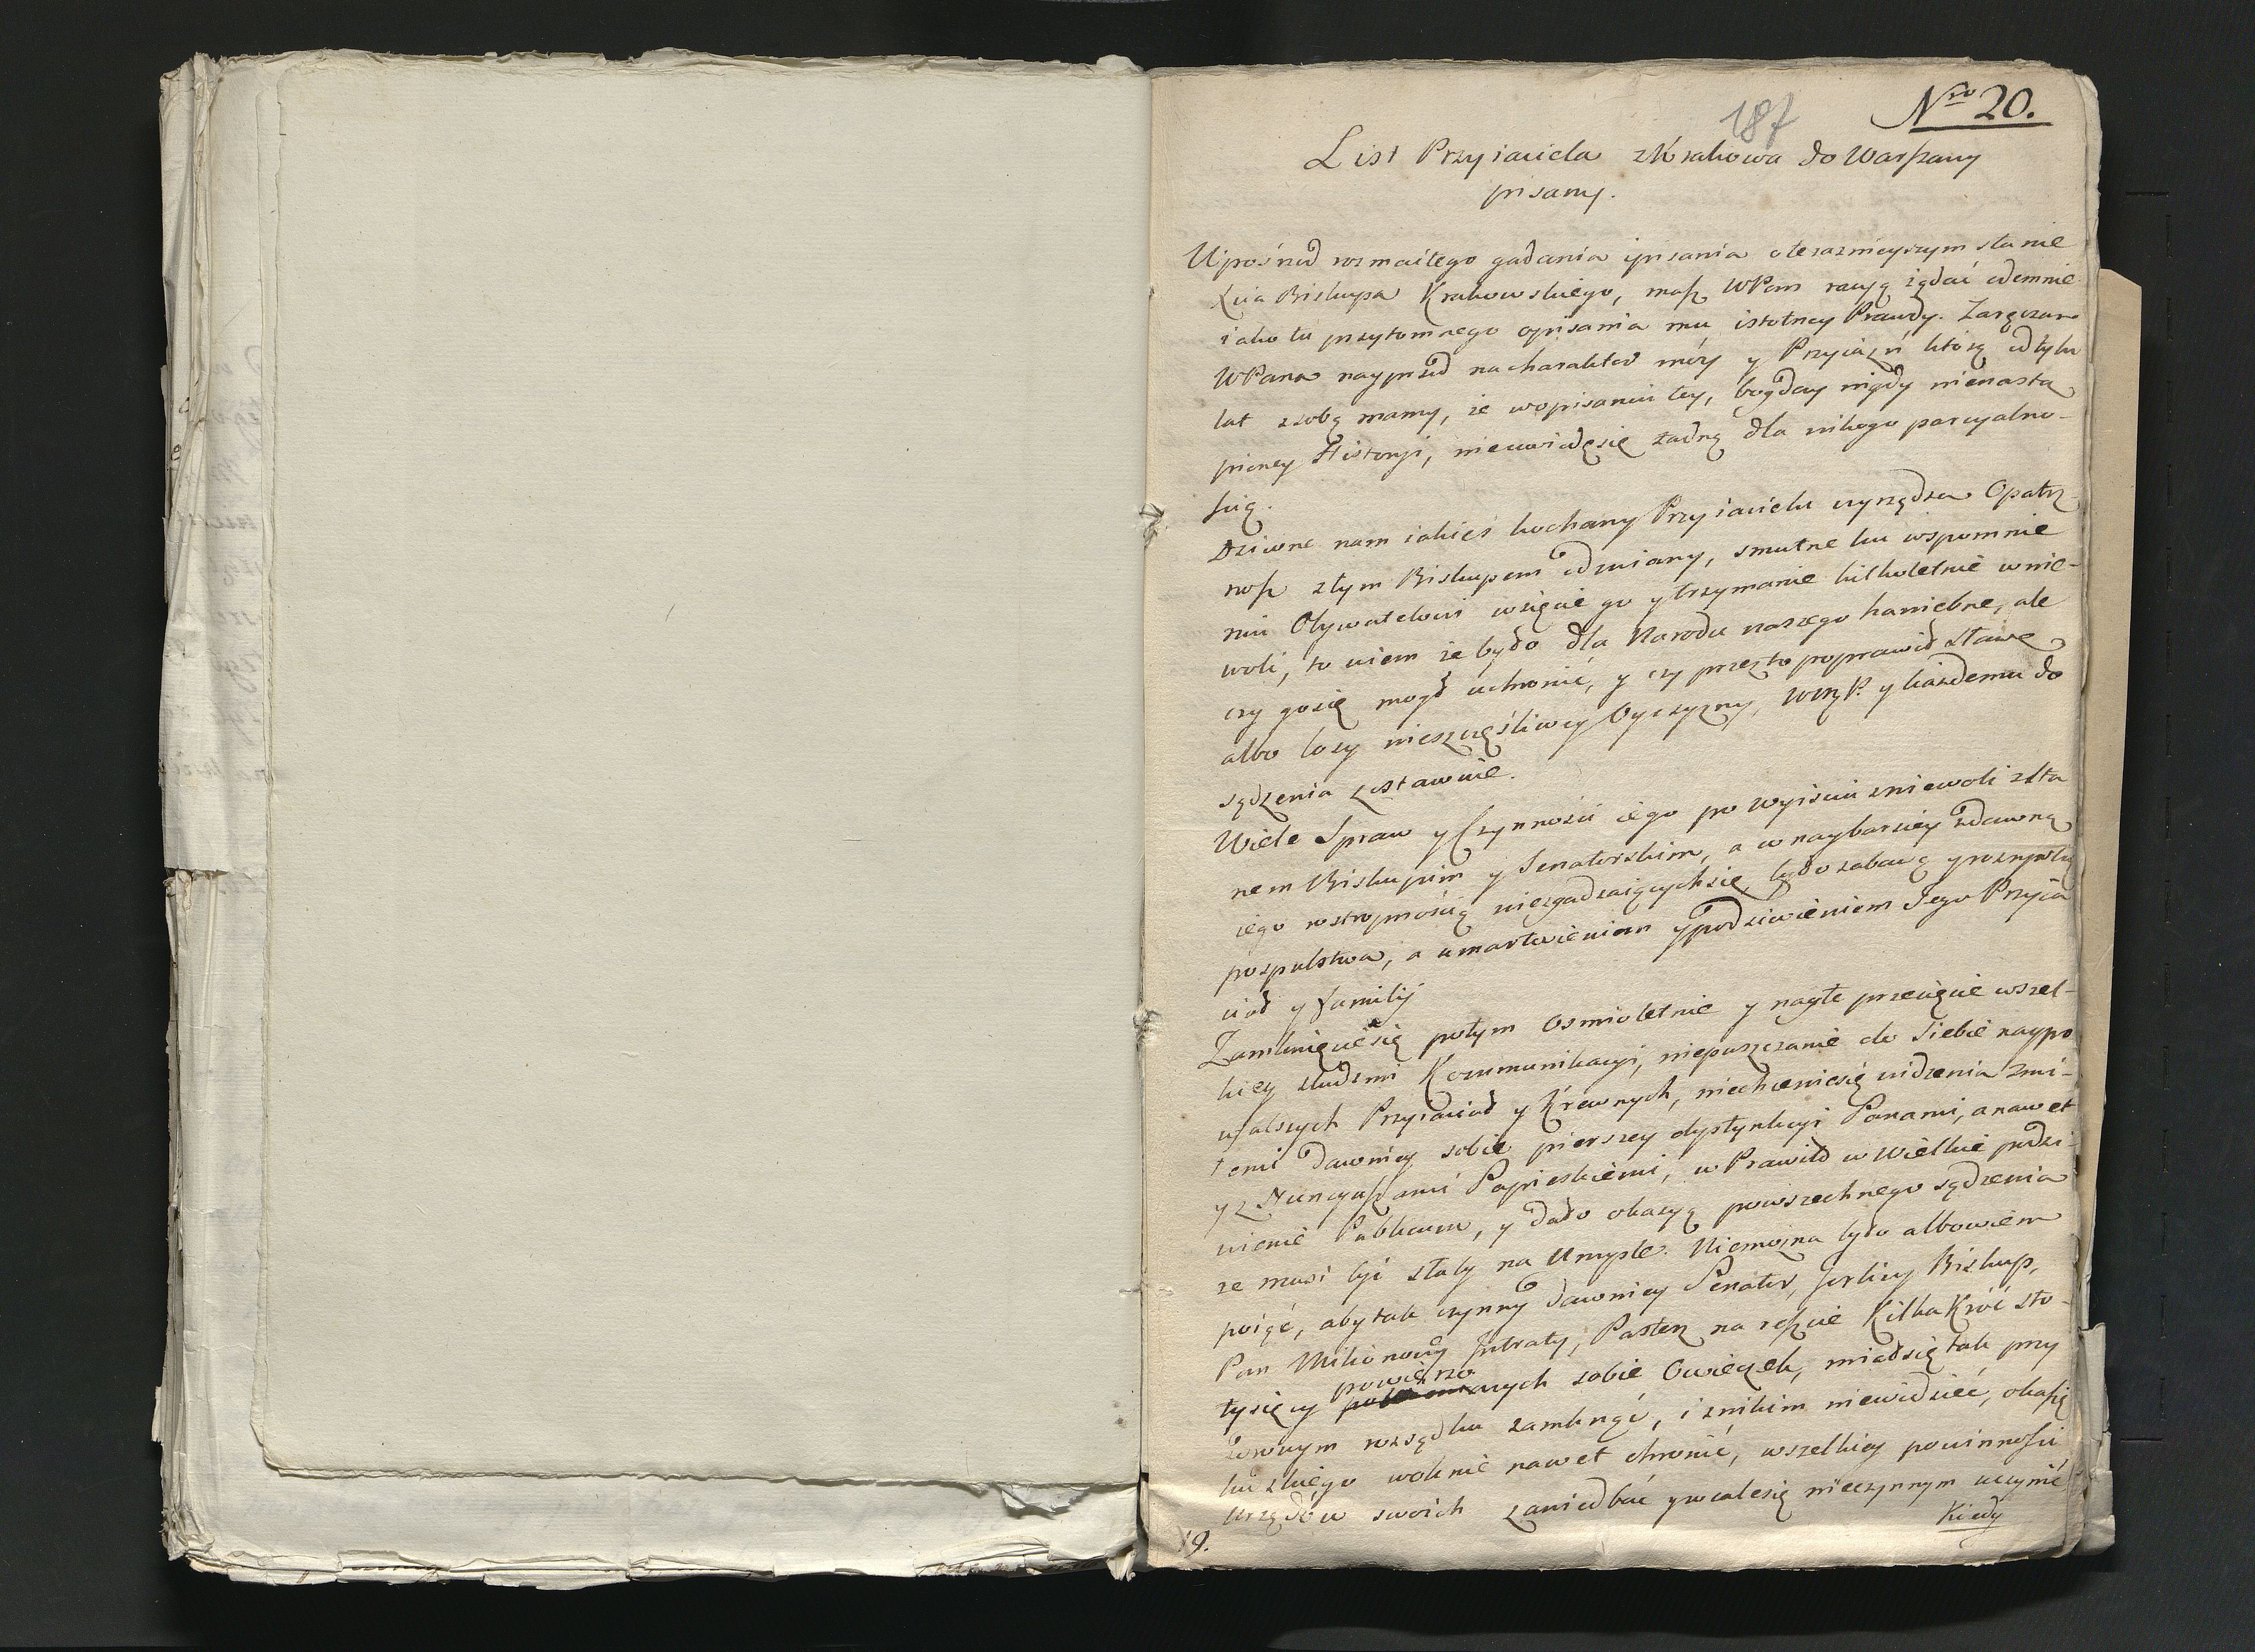 187
Nro 20.
List Przyiaciela z Krakowa do Warszawy
pisany.
Wpośrzod rozmaitego gadania i pisania o terazнieyszym stanie
Xcia Biskupa Krakowskiego, masz WPan racyą żądać odemnie
iako tu przytomnego opisania mu istotney Prawdy. Zaręczam
WPana nayprzod na charakter móy y Przyiaźń którą od tylu
lat z sobą mamy, że w opisaniu tey, bogday nigdy nienastą
pioney Historyi, nieuwiodę się żadną dla nikogo parcyalno-
ścią.
Dziwne nam iakieś kochany Przyiacielu wyrządza Opatrz-
ność z tym Biskupem odmiany, smutne ku wspomnie
niu Obywatelowi wzięcie go y trzymanie kilkoletnie w nie-
woli, to wiem że było dla Narodu naszego haniebne, ale
czy go się mogł uchronić, y czy przez to poprawił sławę
albo losy nieszczęśliwey Oyczyzny, WMP. y każdemu do
sądzenia zostawuię.
Wiele Spraw y Czynności iego po wyiściu z niewoli z Sta
nem Biskupim y Senatorskim, a w naybarziey z dawną
iego roztropnością niezgadzaiących się, było zabawą y rozrywką
pospulstwa, a umartwieniem y podziwieniem Jego Przyia
ciół y familij
Zamknięcie się potym osmioletnie y nagłe przecięcie wszel-
kiey z ludzmi Kommunikacyi, niepuszczanie do siebie naypo
ufalszych Przyiaciół y Krewnych, niechcenie się widzenia z mi-
łemi dawniey sobie pierszey dystynkcyi Panami, a nawet
y z Nuncyuszami Papieskiemi, wprawiło w wielkie podzi-
wienie Publicum, y dało okazyą powszechnego sądzenia
że musi być słaby na Umyśle. Niemożna było albowiem
poiąć, aby tak czynny dawniey Senator, gorliwy Biskup,
Pan Milionowy Intraty, Pasterz na reszcie Kilkakroć sto-
tysięcy powierzonych sobie Owieczek, miał się tak przy
zdrowym rozsądku zamknąć, i z nikim niewidzieć, okazyi
ludzkiego wokнie nawet chronić, wszelkiey powinności
Urzędów swoich zaniedbać y wcale się nieczynnym uczynić
Kiedy
19.